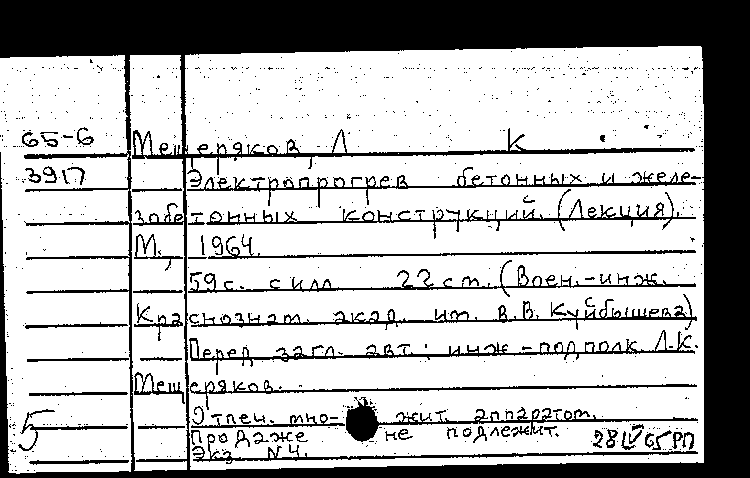 65-6 Мещеряков, Л К
3917 Электропрогрев бетонных и желе-
зобетонных конструкций. (Лекция).
М., 1964.
59с. с илл 22см. (Воен.-инж.
Краснознам. акад. им. В.В. Куйбышева)
Перед загл. авт.: инж-подполк Л.К.
Мещеряков.
Отпеч. мно- жит. аппаратом.
5 Продаже не подлежит.
Экз. N4. 28 IV 65 РП